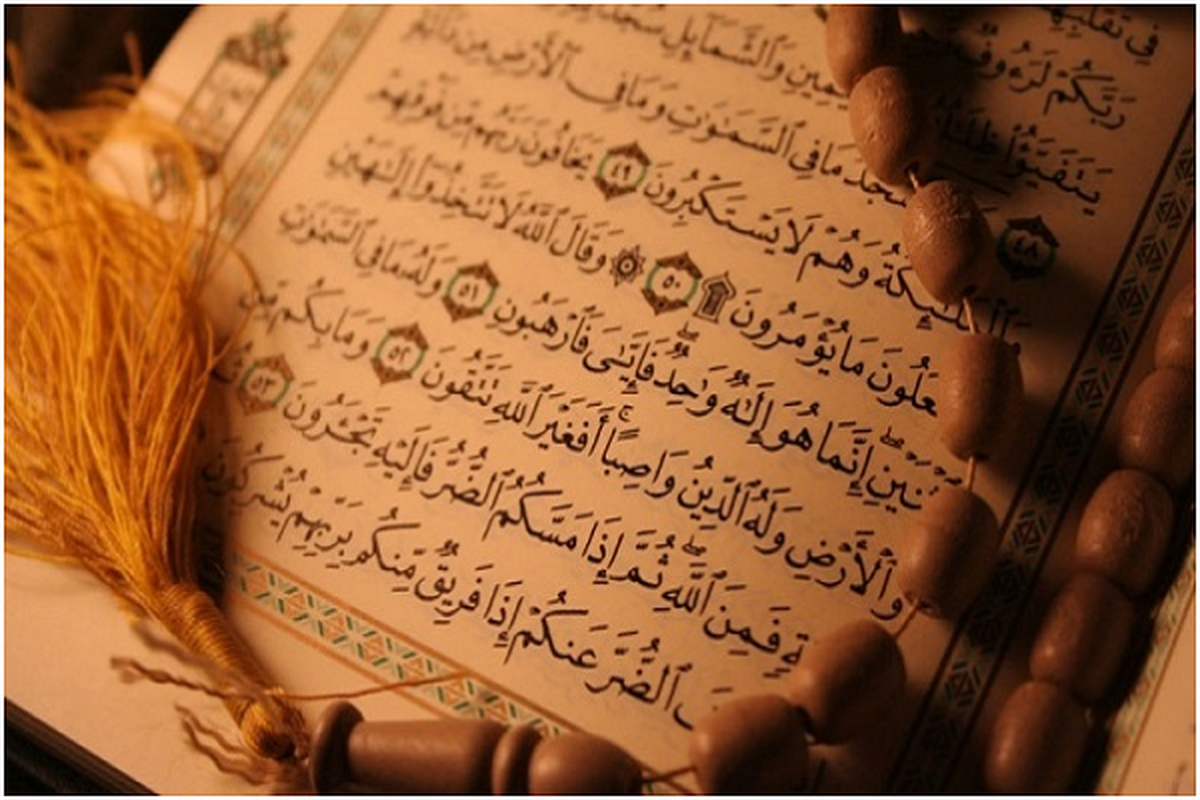 فِى تَقَلُّبِهِمْ
رَبَّكُمْ لَرَءُوفٌ
يَتَفَيَّؤُا۟ ظِلَـٰلُهُۥ وَٱلشَّمَآئِلِ سُجَّدًا
٤٨ مَا فِى ٱلسَّمَـٰوَٰتِ وَمَا فِى ٱلْأَرْضِ مِن دَآبَّةٍ
وَٱلْمَلَـٰٓئِكَةُ وَهُمْ لَا يَسْتَكْبِرُونَ ٤٩ يَخَافُونَ رَبَّهُم مِّن فَوْقِهِمْ
مَا يُؤْمَرُونَ ۩ ٥٠ ۞ وَقَالَ ٱللَّهُ لَا تَتَّخِذُوٓا۟ إِلَـٰهَيْنِ
إِنَّمَا هُوَ إِلَـٰهٌ وَٰحِدٌ فَإِيَّـٰىَ فَٱرْهَبُونِ ٥١ وَلَهُۥ مَا فِى ٱلسَّمَـٰوَٰتِ
وَٱلْأَرْضِ وَلَهُ ٱلدِّينُ وَاصِبًا ۚ أَفَغَيْرَ ٱللَّهِ تَتَّقُونَ ٥٢ وَمَا بِكُم مِّن
فَمِنَ ٱللَّهِ ۖ ثُمَّ إِذَا مَسَّكُمُ ٱلضُّرُّ فَإِلَيْهِ تَجْـَٔرُونَ ٥٣
ٱلضُّرَّ عَنكُمْ إِذَا فَرِيقٌ مِّنكُم بِرَبِّهِمْ يُشْرِكُونَ